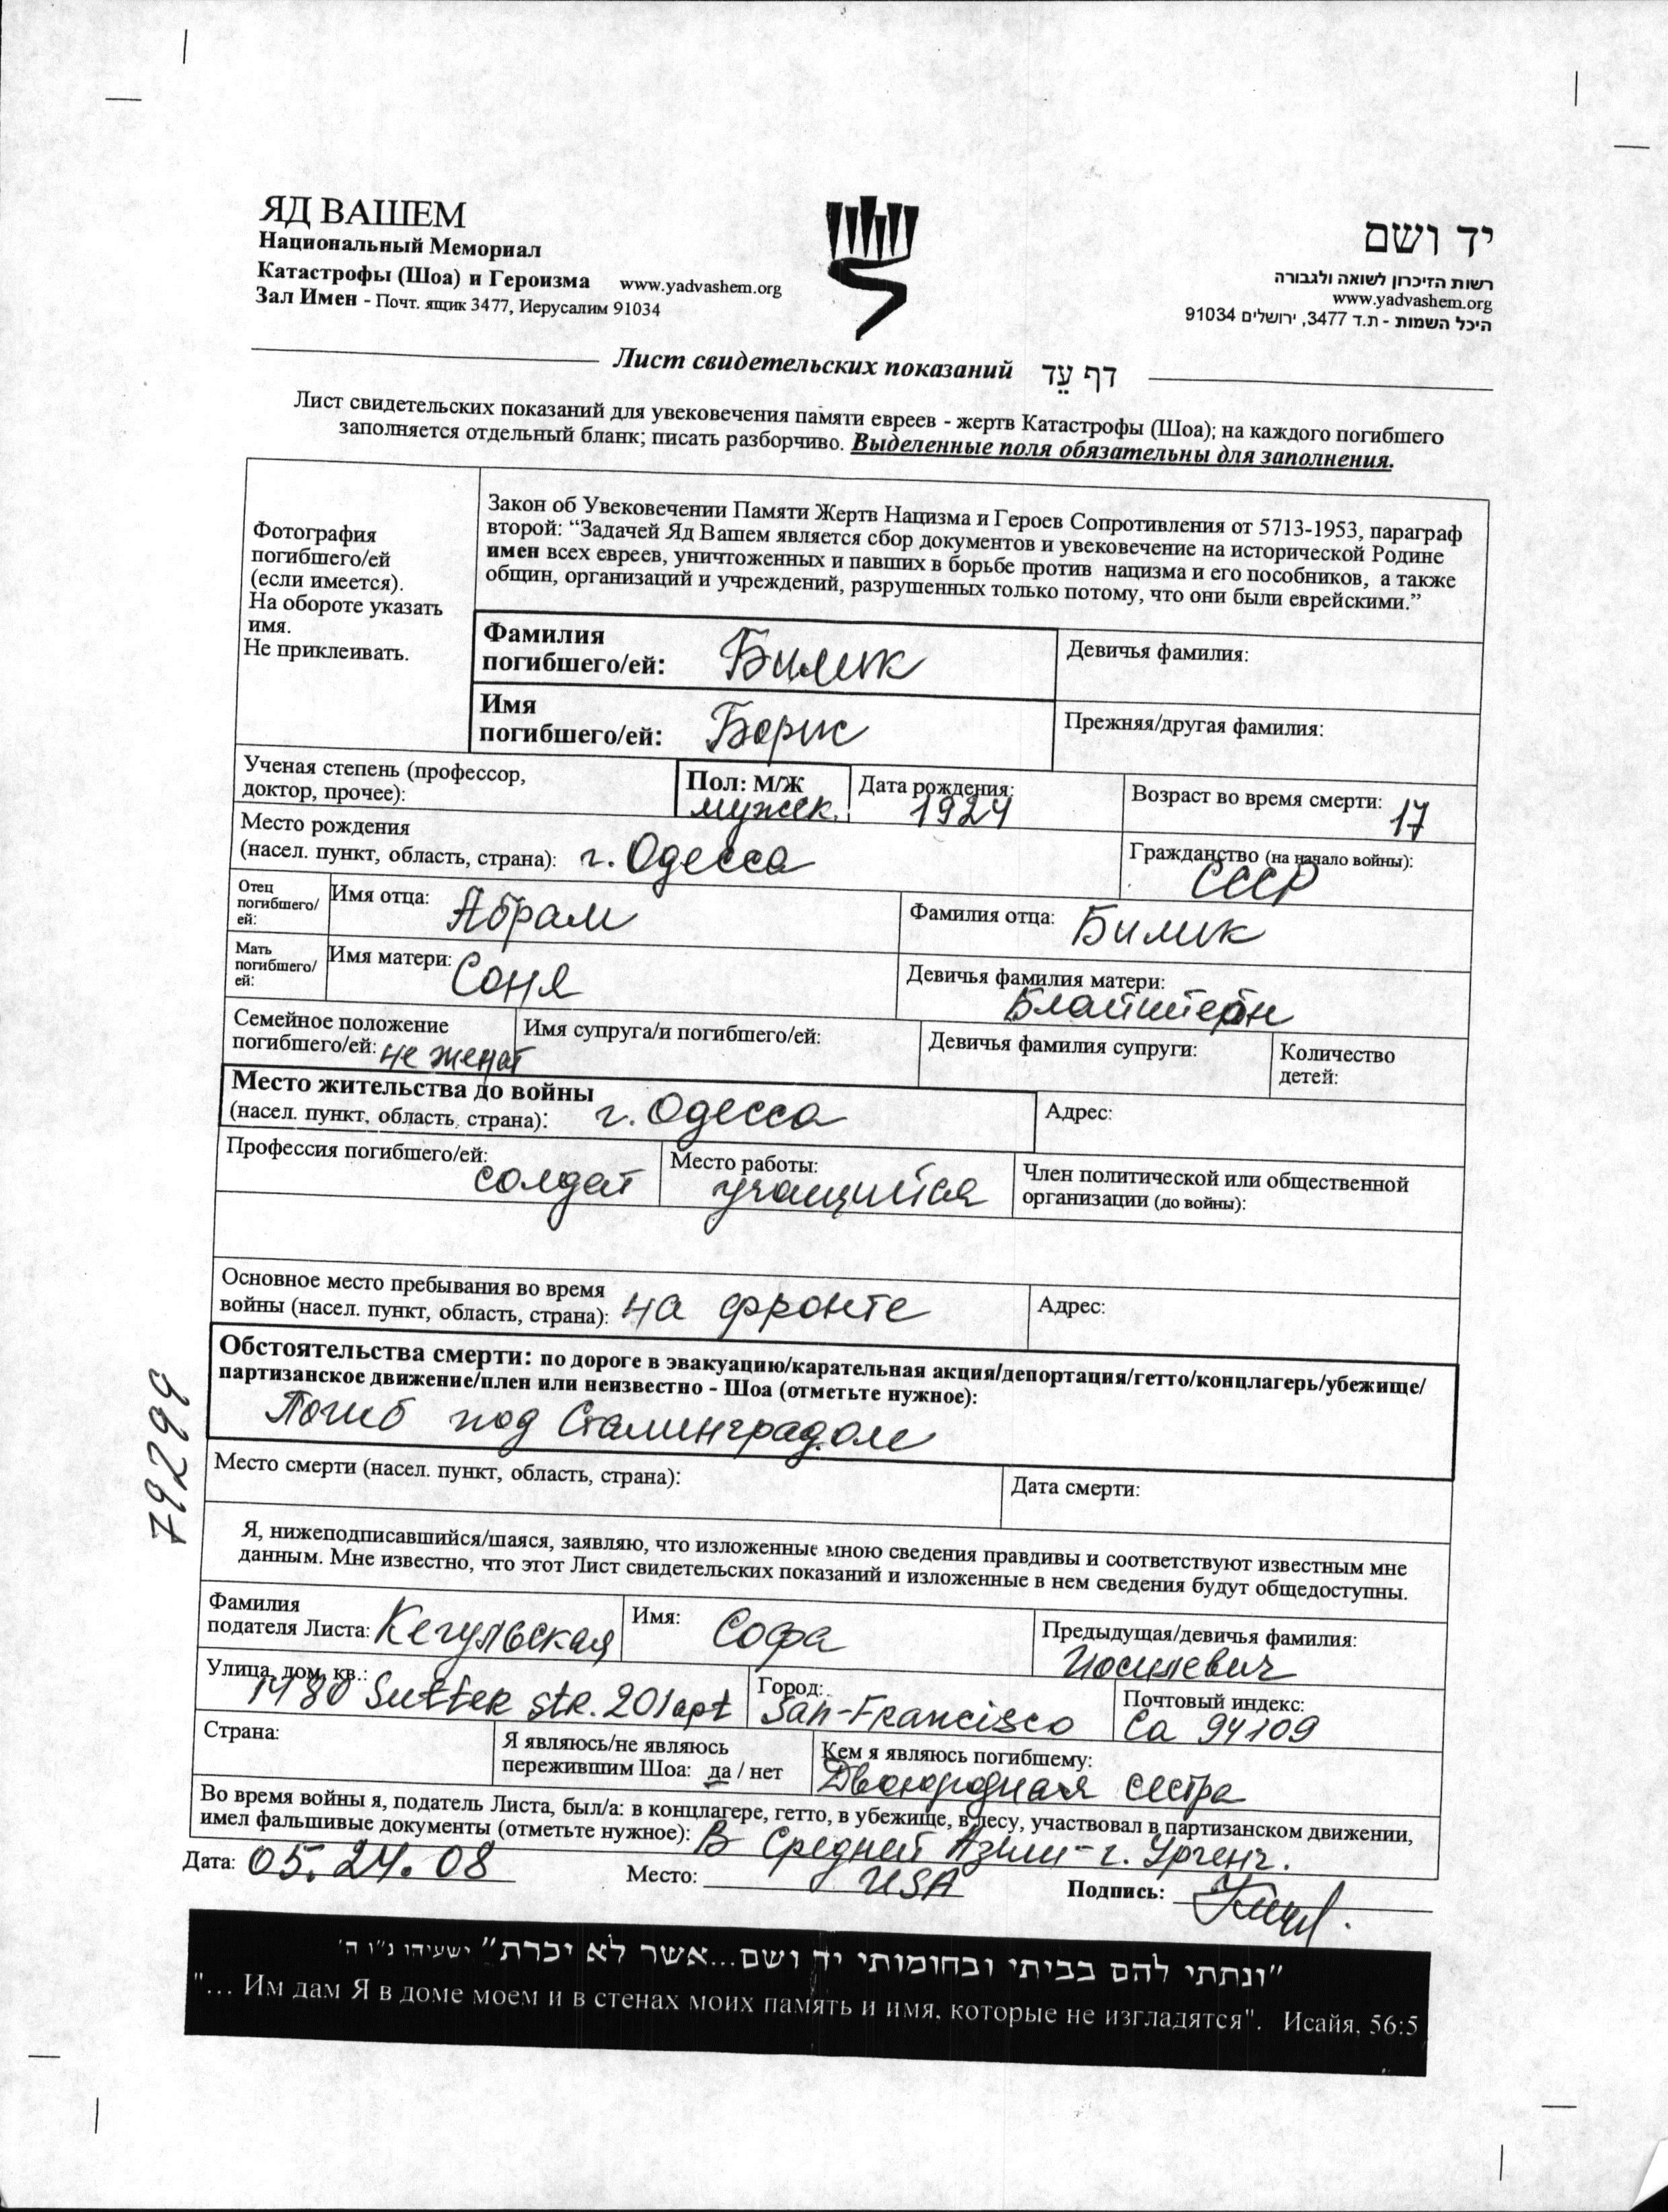 ЯД ВАШЕМ
Национальный Мемориал
Катастрофы (Шоа) и Героизма www.yadvashem.org
Зал Имен - Почт. ящик 3477, Иерусалим 91034
יד ושם
רשות הזיכרון לשואה ולגבורה
www.yadvashem.org
היכל השמות - ת.ד 3477, ירושלים 91034
Лист свидетельских показаний דף עֵד
Лист свидетельских показаний для увековечения памяти евреев - жертв Катастрофы (Шоа); на каждого погибшего
заполняется отдельный бланк; писать разборчиво. Выделенные поля обязательны для заполнения.
Фотография
погибшего/ей
(если имеется).
На обороте указать
имя.
Не приклеивать.
Закон об Увековечении Памяти Жертв Нацизма и Героев Сопротивления от 5713-1953, параграф
второй: “Задачей Яд Вашем является сбор документов и увековечение на исторической Родине
имен всех евреев, уничтоженных и павших в борьбе против нацизма и его пособников, а также
общин, организаций и учреждений, разрушенных только потому, что они были еврейскими.”
Фамилия
погибшего/ей: Билик
Девичья фамилия:
Имя
погибшего/ей: Борис
Прежняя/другая фамилия:
Ученая степень (профессор,
доктор, прочее):
Пол: М/Ж
мужск.
Дата рождения:
1924
Возраст во время смерти: 17
Место рождения
(насел. пункт, область, страна): г. Одесса
Гражданство (на начало войны):
СССР
Отец
погибшего/
ей:
Имя отца: Абрам
Фамилия отца: Билик
Мать
погибшего/
ей:
Имя матери: Соня
Девичья фамилия матери:
Семейное положение
погибшего/ей: не женат
Имя супруга/и погибшего/ей:
Девичья фамилия супруги:
Количество
детей:
Место жительства до войны
(насел. пункт, область, страна): г. Одесса
Адрес:
Профессия погибшего/ей:
солдат
Место работы:
учащийся
Член политической или общественной
организации (до войны):
Основное место пребывания во время
войны (насел. пункт, область, страна): на фронте
Адрес:
Обстоятельства смерти: по дороге в эвакуацию/карательная акция/депортация/гетто/концлагерь/убежище/
партизанское движение/плен или неизвестно - Шоа (отметьте нужное):
Погиб под Сталинградом
Место смерти (насел. пункт, область, страна):
Дата смерти:
79299
Я, нижеподписавшийся/шаяся, заявляю, что изложенные мною сведения правдивы и соответствуют известным мне
данным. Мне известно, что этот Лист свидетельских показаний и изложенные в нем сведения будут общедоступны.
Фамилия
подателя Листа: Кегульская
Имя: Софа
Предыдущая/девичья фамилия:
Иосилевич
Улица, дом, кв.:
1480 Sutter str. 201apt
Город:
San-Francisco
Почтовый индекс:
Ca 94109
Страна:
Я являюсь/не являюсь
пережившим Шоа: да / нет
Кем я являюсь погибшему:
Двоюродная сестра
Во время войны я, податель Листа, был/а: в концлагере, гетто, в убежище, в лесу, участвовал в партизанском движении,
имел фальшивые документы (отметьте нужное): В Средней Азии - г. Ургенч.
Дата: 05.24.08
Место: USA
Подпись:
"ונתתי להם בביתי ובחומותי יד ושם...אשר לא יכרת" ישעיהו נ"ו ה'
"... Им дам Я в доме моем и в стенах моих память и имя, которые не изгладятся". Исайя, 56:5